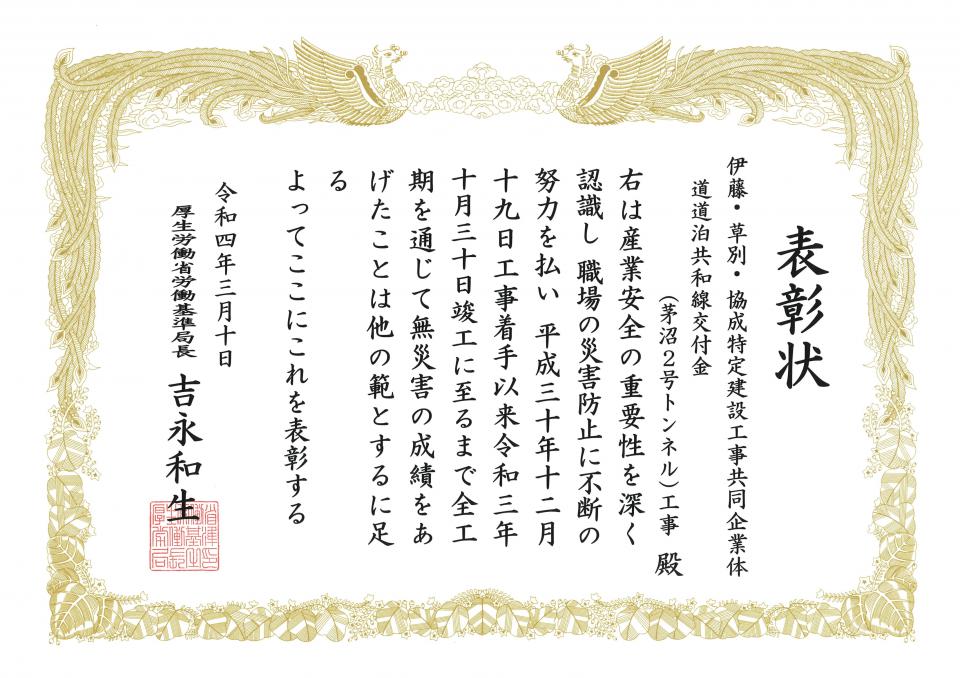 表彰状
伊藤・草別・協成特定建設工事共同企業体
道道泊共和線交付金
(茅沼2号トンネル)工事 殿
右は産業安全の重要性を深く
認識し 職場の災害防止に不断の
努力を払い 平成三十年十二月
十九日工事着手以来令和三年
十月三十日竣工に至るまで全工
期を通じて無災害の成績をあ
げたことは他の範とするに足
る
よってここにこれを表彰する
令和四年三月十日
厚生労働省労働基準局長 吉永和生